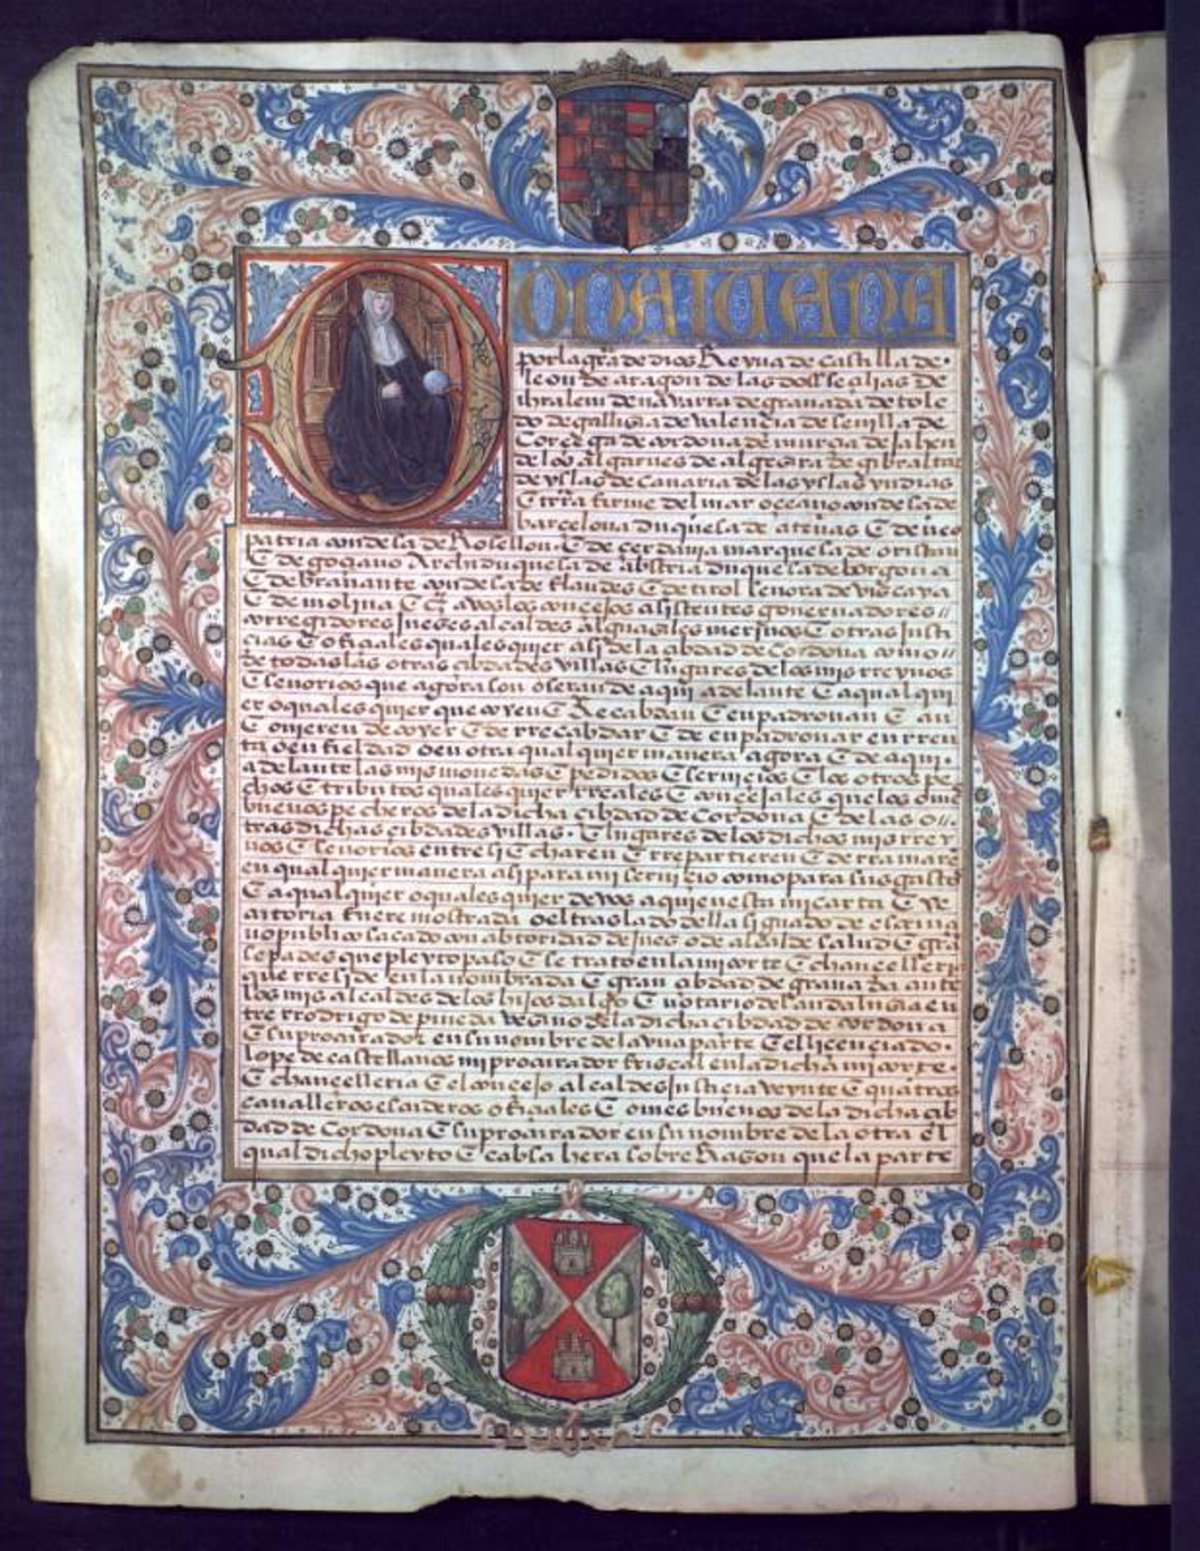 DONA IUANA
por la gra de dios Reyna de castilla de
leon de aragon de las dos seçilias de
ihralem de navarra de granada de tole
do de gallizia de valençia de sevilla de
Corçega de cordova de murçia de jahen
de los algarves de algezira de gibraltar
de yslas de canaria de las yslas yndias
E trra firme del mar oçeano condesa de
barçelona duquesa de atenas E de neo
patria condesa de Rosellon E de çerdania marquesa de oristan
E de goçiano Archiduquesa de abstria duquesa de borgoña
E de bravante condesa de flandes E de tirol señora de vizcaya
E de molina E a vos los conçejos asistentes governadores
corregidores jueses alcaldes alguasiles merinos E otras justi
çias E ofiçiales quales quier asi de la çibdad de Cordova como
de todas las otras çibdades villas E lugares de los mis rreynos
E señorios que agora son o seran de aqui adelante E a qual qui
er o quales quier que cojen E Recabdan E enpadronan E an
E ovieren de cojer E de rrecabdar E de enpadronar en rren
ta o en fieldad o en otra qual quier manera agora E de aqui
adelante las mis monedas E pedidos E serviçios E los otros pe
chos E tributos quales quier rreales E conçejales que los omes
buenos pecheros de la dicha çibdad de Cordova E de las o
tras dichas çibdades villas E lugares de los dichos mis rrey
nos E señorios entre si E echaren E rrepartieren E derramaren
en qual quier manera asi para mi serviçio como para sus gastos
E a qual quier o quales quier de vos a quien esta mi carta E
fuere mostrada o el traslado della signado de escriva
no publico sacado con abtoridad de jues o de alcalde salud E graçia
sepades que pleyto paso E se trato en la mi corte E chançelleria
que rreside en la nombrada E gran çibdad de granada ante
los mis alcaldes de los hijos dalgo E notario del andaluzia en
tre rrodrigo de pineda vezino de la dicha çibdad de cordova
E su procurador en su nombre de la una parte E el liçençiado
lope de castellanos mi procurador fiscal en la dicha mi corte
E chançelleria E el conçejo alcaldes justiçia veynte E quatros
cavalleros escuderos ofiçiales E omes buenos de la dicha çib
dad de Cordova E su procurador en su nombre de la otra el
qual dicho pleyto E cabsa hera sobre Razon que la parte